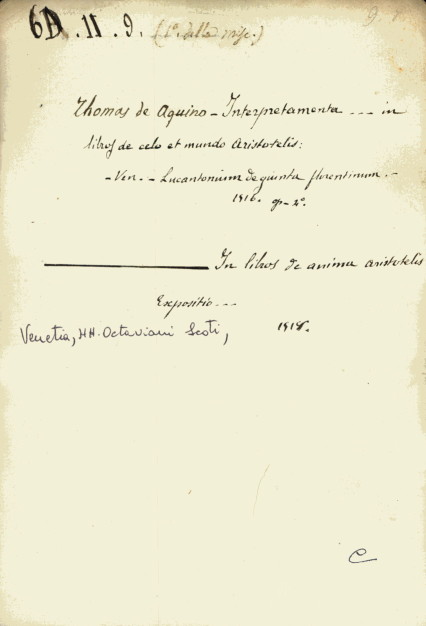 6D.11.9. (1ª. della misc.)
Thomas de Aquino - Interpretamenta --- in
libros de celo et mundo Aristotelis:
- Ven. - Lucantonium de giunta florentinum. -
1516. gr-2º.
In libros de anima aristotelis
Expositio ---
Venetia, HH. Octaviani Scoti,
C